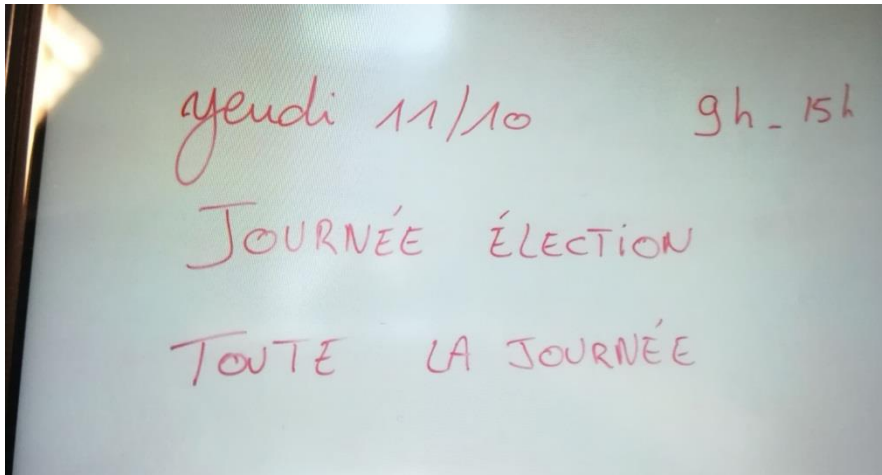 Jeudi 11/10 9h - 15h
JOURNÉE ÉLECTION
TOUTE LA JOURNÉE